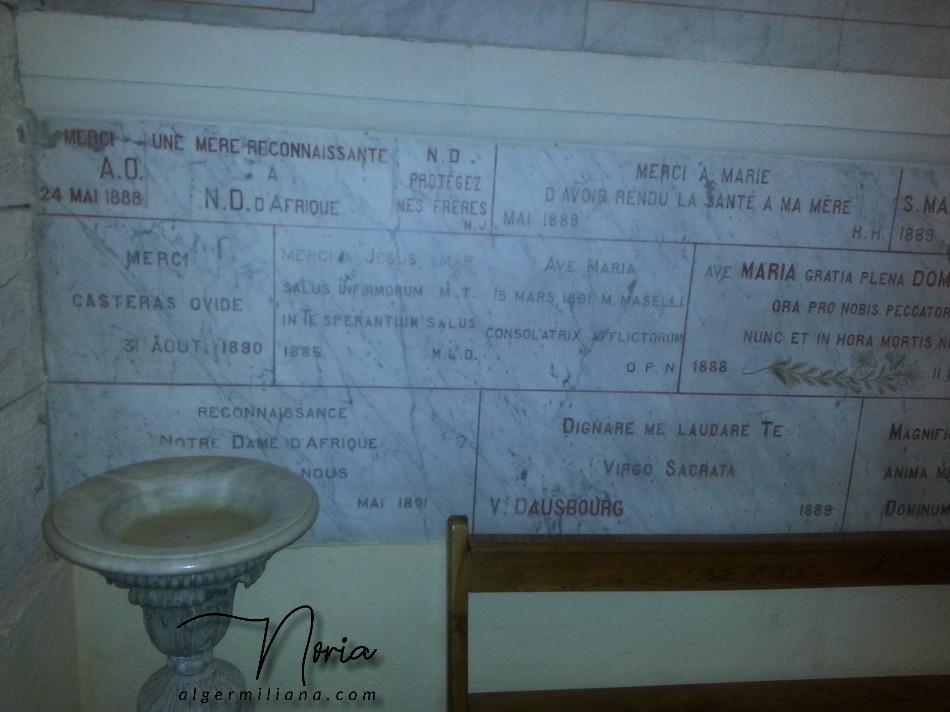 MERCI
A.O.
24 MAI 1888
UNE MERE RECONNAISSANTE
A
N.D. D'AFRIQUE
N.D.
PROTÉGEZ
MES FRÈRES
M.J.
MERCI A MARIE
D'AVOIR RENDU LA SANTÉ A MA MÈRE
MAI 1889
H.H.
S. MA
1889
MERCI
CASTERAS OVIDE
31 AOUT 1890
MERCI A JÉSUS M.P.
SALUS INFIRMORUM M.T.
IN TE SPERANTIUM SALUS
1885 M.L.D.
AVE MARIA
15 MARS 1891 M. MASELLI
CONSOLATRIX AFFLICTORUM
O.P.N
AVE MARIA GRATIA PLENA DOM
ORA PRO NOBIS PECCATOR
NUNC ET IN HORA MORTIS N
1888
RECONNAISSANCE
NOTRE DAME D'AFRIQUE
NOUS
MAI 1891
DIGNARE ME LAUDARE TE
VIRGO SACRATA
V. DAUSBOURG 1889
MAGNIFI
ANIMA M
DOMINUM
Noria
algermiliana.com